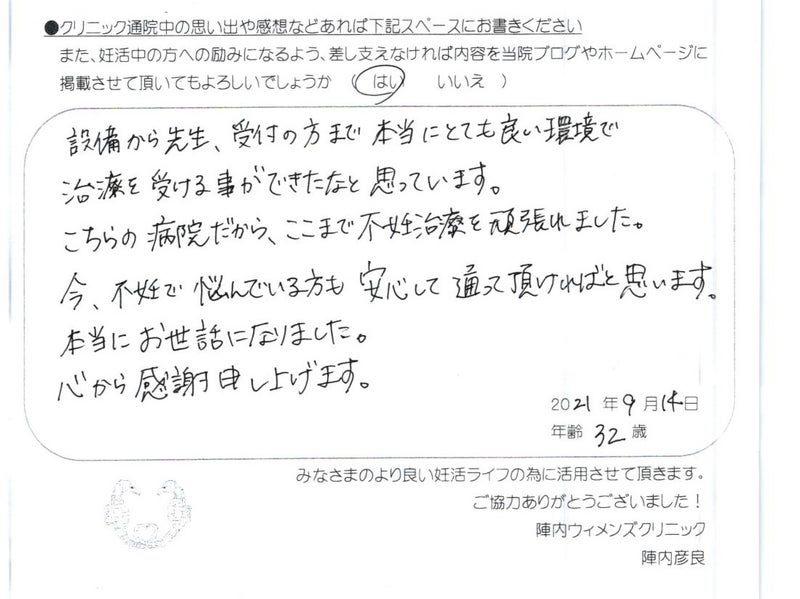 ●クリニック通院中の思い出や感想などあれば下記スペースにお書きください
また、妊活中の方への励みになるよう、差し支えなければ内容を当院ブログやホームページに
掲載させて頂いてもよろしいでしょうか （ はい いいえ ）
設備から先生、受付の方まで本当にとても良い環境で
治療を受ける事ができたなと思っています。
こちらの病院だから、ここまで不妊治療を頑張れました。
今、不妊で悩んでいる方も安心して通って頂ければと思います。
本当にお世話になりました。
心から感謝申し上げます。
2021年9月14日
年齢 32 歳
みなさまのより良い妊活ライフの為に活用させて頂きます。
ご協力ありがとうございました！
陣内ウィメンズクリニック
陣内彦良